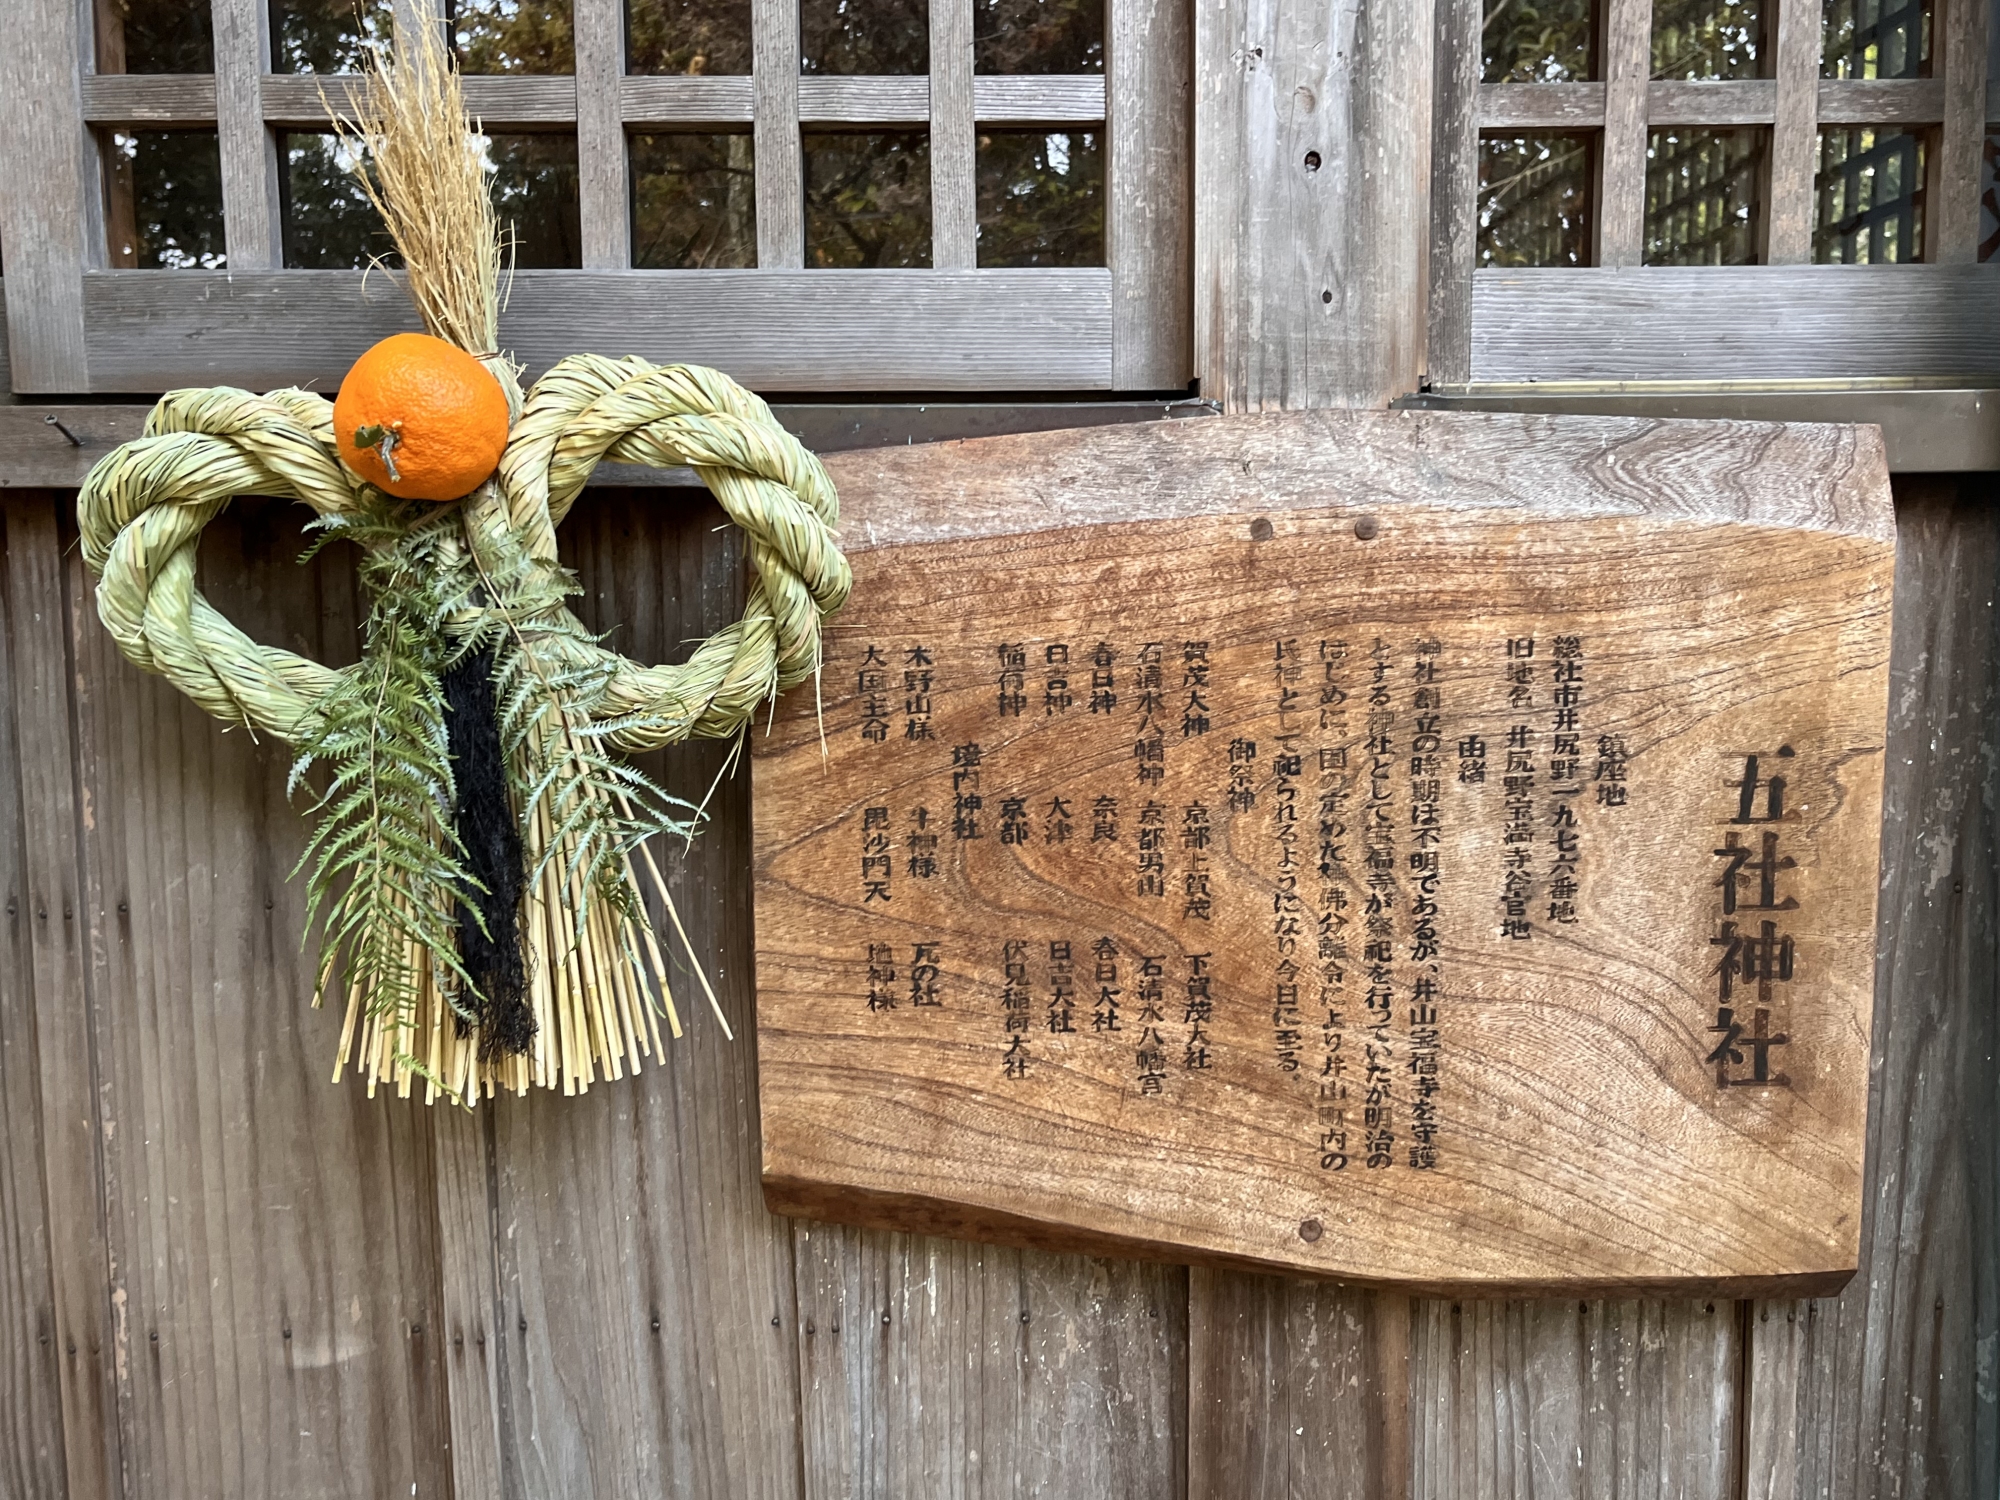 五社神社
鎮座地
総社市井尻野一九七六番地
旧地名 井尻野宝満寺谷官地
由緒
神社創立の時期は不明であるが、井山宝福寺を守護
とする神社として宝福寺が祭祀を行っていたが明治の
はじめに、国の定めた神佛分離令により井山町内の
氏神として祀られるようになり今日に至る。
御祭神
賀茂大神 京都上賀茂 下賀茂大社
石清水八幡神 京都男山 石清水八幡宮
春日神 奈良 春日大社
日吉神 大津 日吉大社
稲荷神 京都 伏見稲荷大社
境内神社
木野山様 牛神様 瓦の社
大国主命 毘沙門天 地神様